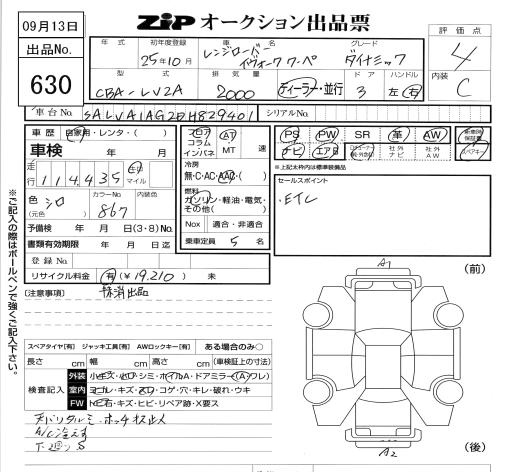 09月13日
ZIP オークション出品票
出品No.
630
年式 初年度登録 車名 グレード
25年10月 レンジローバー イヴォーク クーペ ダイナミック
評価点
4
内装
C
型式 排気量 ドア ハンドル
CBA-LV2A 2000 ディーラー・並行 3 左 右
車台No. SALVA1AG2DH829401 シリアルNo.
車歴 自家用・レンタ・( )
車検 年 月
走行 114,435 km マイル
色 シロ (元色) カラーNo. 867 内装色
予備検 年 月 日(3・8)No.
書類有効期限 年 月 日迄
登録No.
リサイクル料金 有(¥19,210) 未
フロア コラム インパネ AT MT 速
冷房
無・C・AC・AAC・( )
燃料
ガソリン・軽油・電気・その他( )
Nox 適合・非適合
乗車定員 5 名
PS PW SR 革 AW 新車時保証書
ナビ エアB 社外ナビ 社外AW スペアキー
*上記太枠内は標準装備品
セールスポイント
・ETC
※ご記入の際はボールペンで強くご記入下さい。
[注意事項] 抹消出品
A1
(前)
スペアタイヤ[有] ジャッキ工具[有] AWロックキー[有] ある場合のみ○
長さ cm 幅 cm 高さ cm (車検証上の寸法)
検査記入
外装 小キズ・小凹・シミ・ホイルA・ドアミラー(A)ワレ)
室内 ヨゴレ・キズ・スリ・コゲ・穴・キレ・破れ・ウキ
FW トビ石・キズ・ヒビ・リペア跡・X要ス
A/C冷えず
下廻りS
A2
(後)